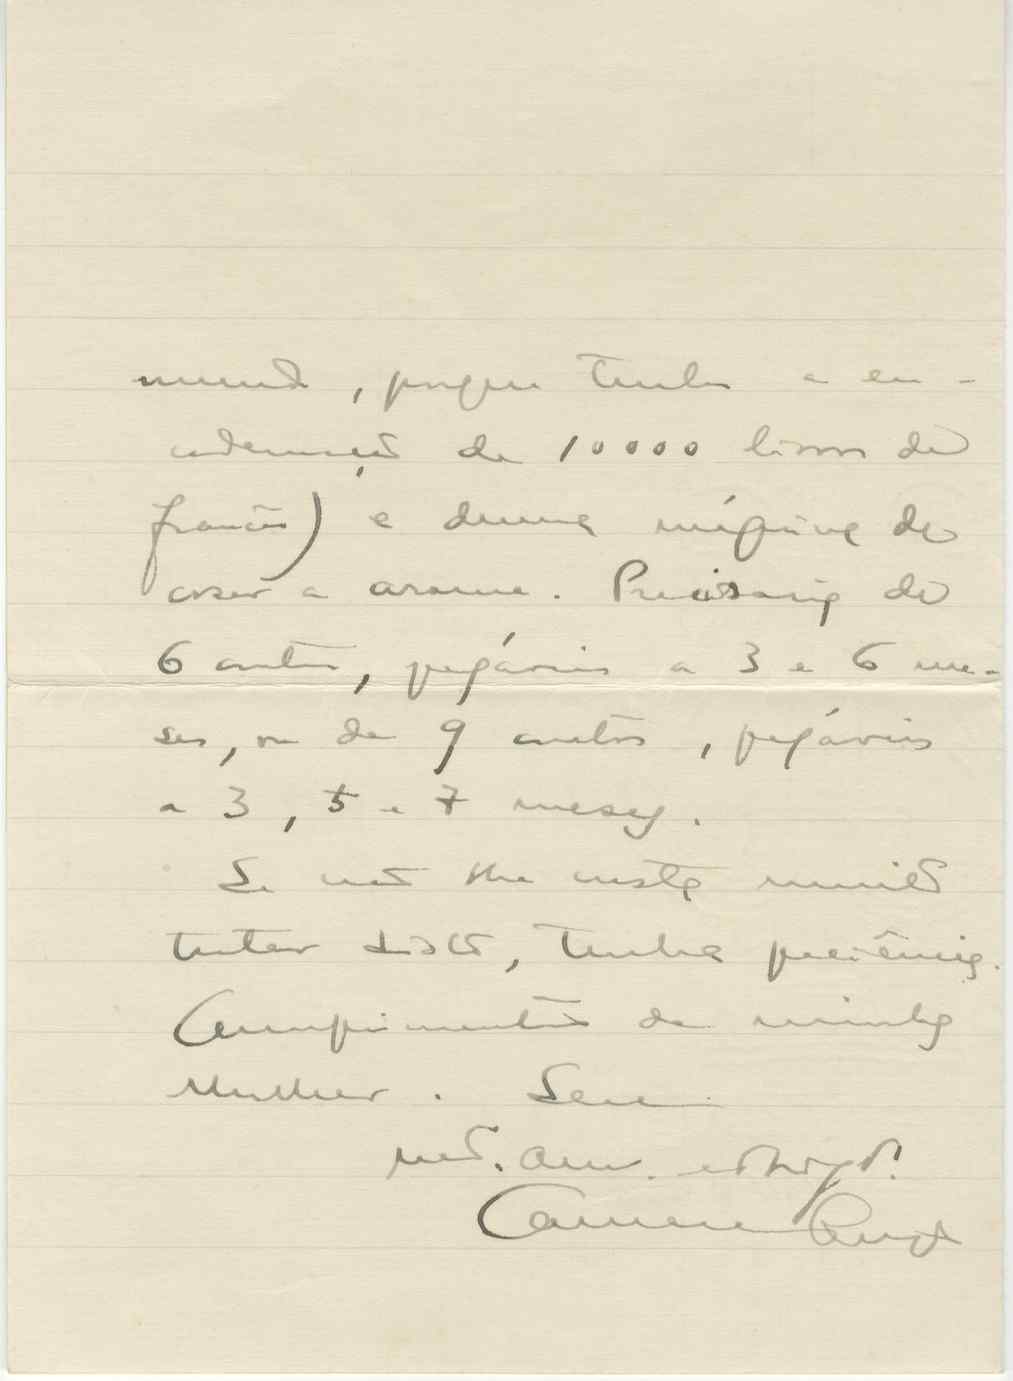 mundo, porque tenho a en-
cadernação de 10000 livros de
francês) e duma máquina de
coser a arame. Precisaria de
6 contos, pagáveis a 3 e 6 me-
ses, ou de 9 contos, pagáveis
a 3, 5 e 7 meses.
Se não lhe custa muito
tratar disto, tenha paciência.
Cumprimentos de minha
Mulher. Seu
mto. am. e obrigdo.
Camara Reys